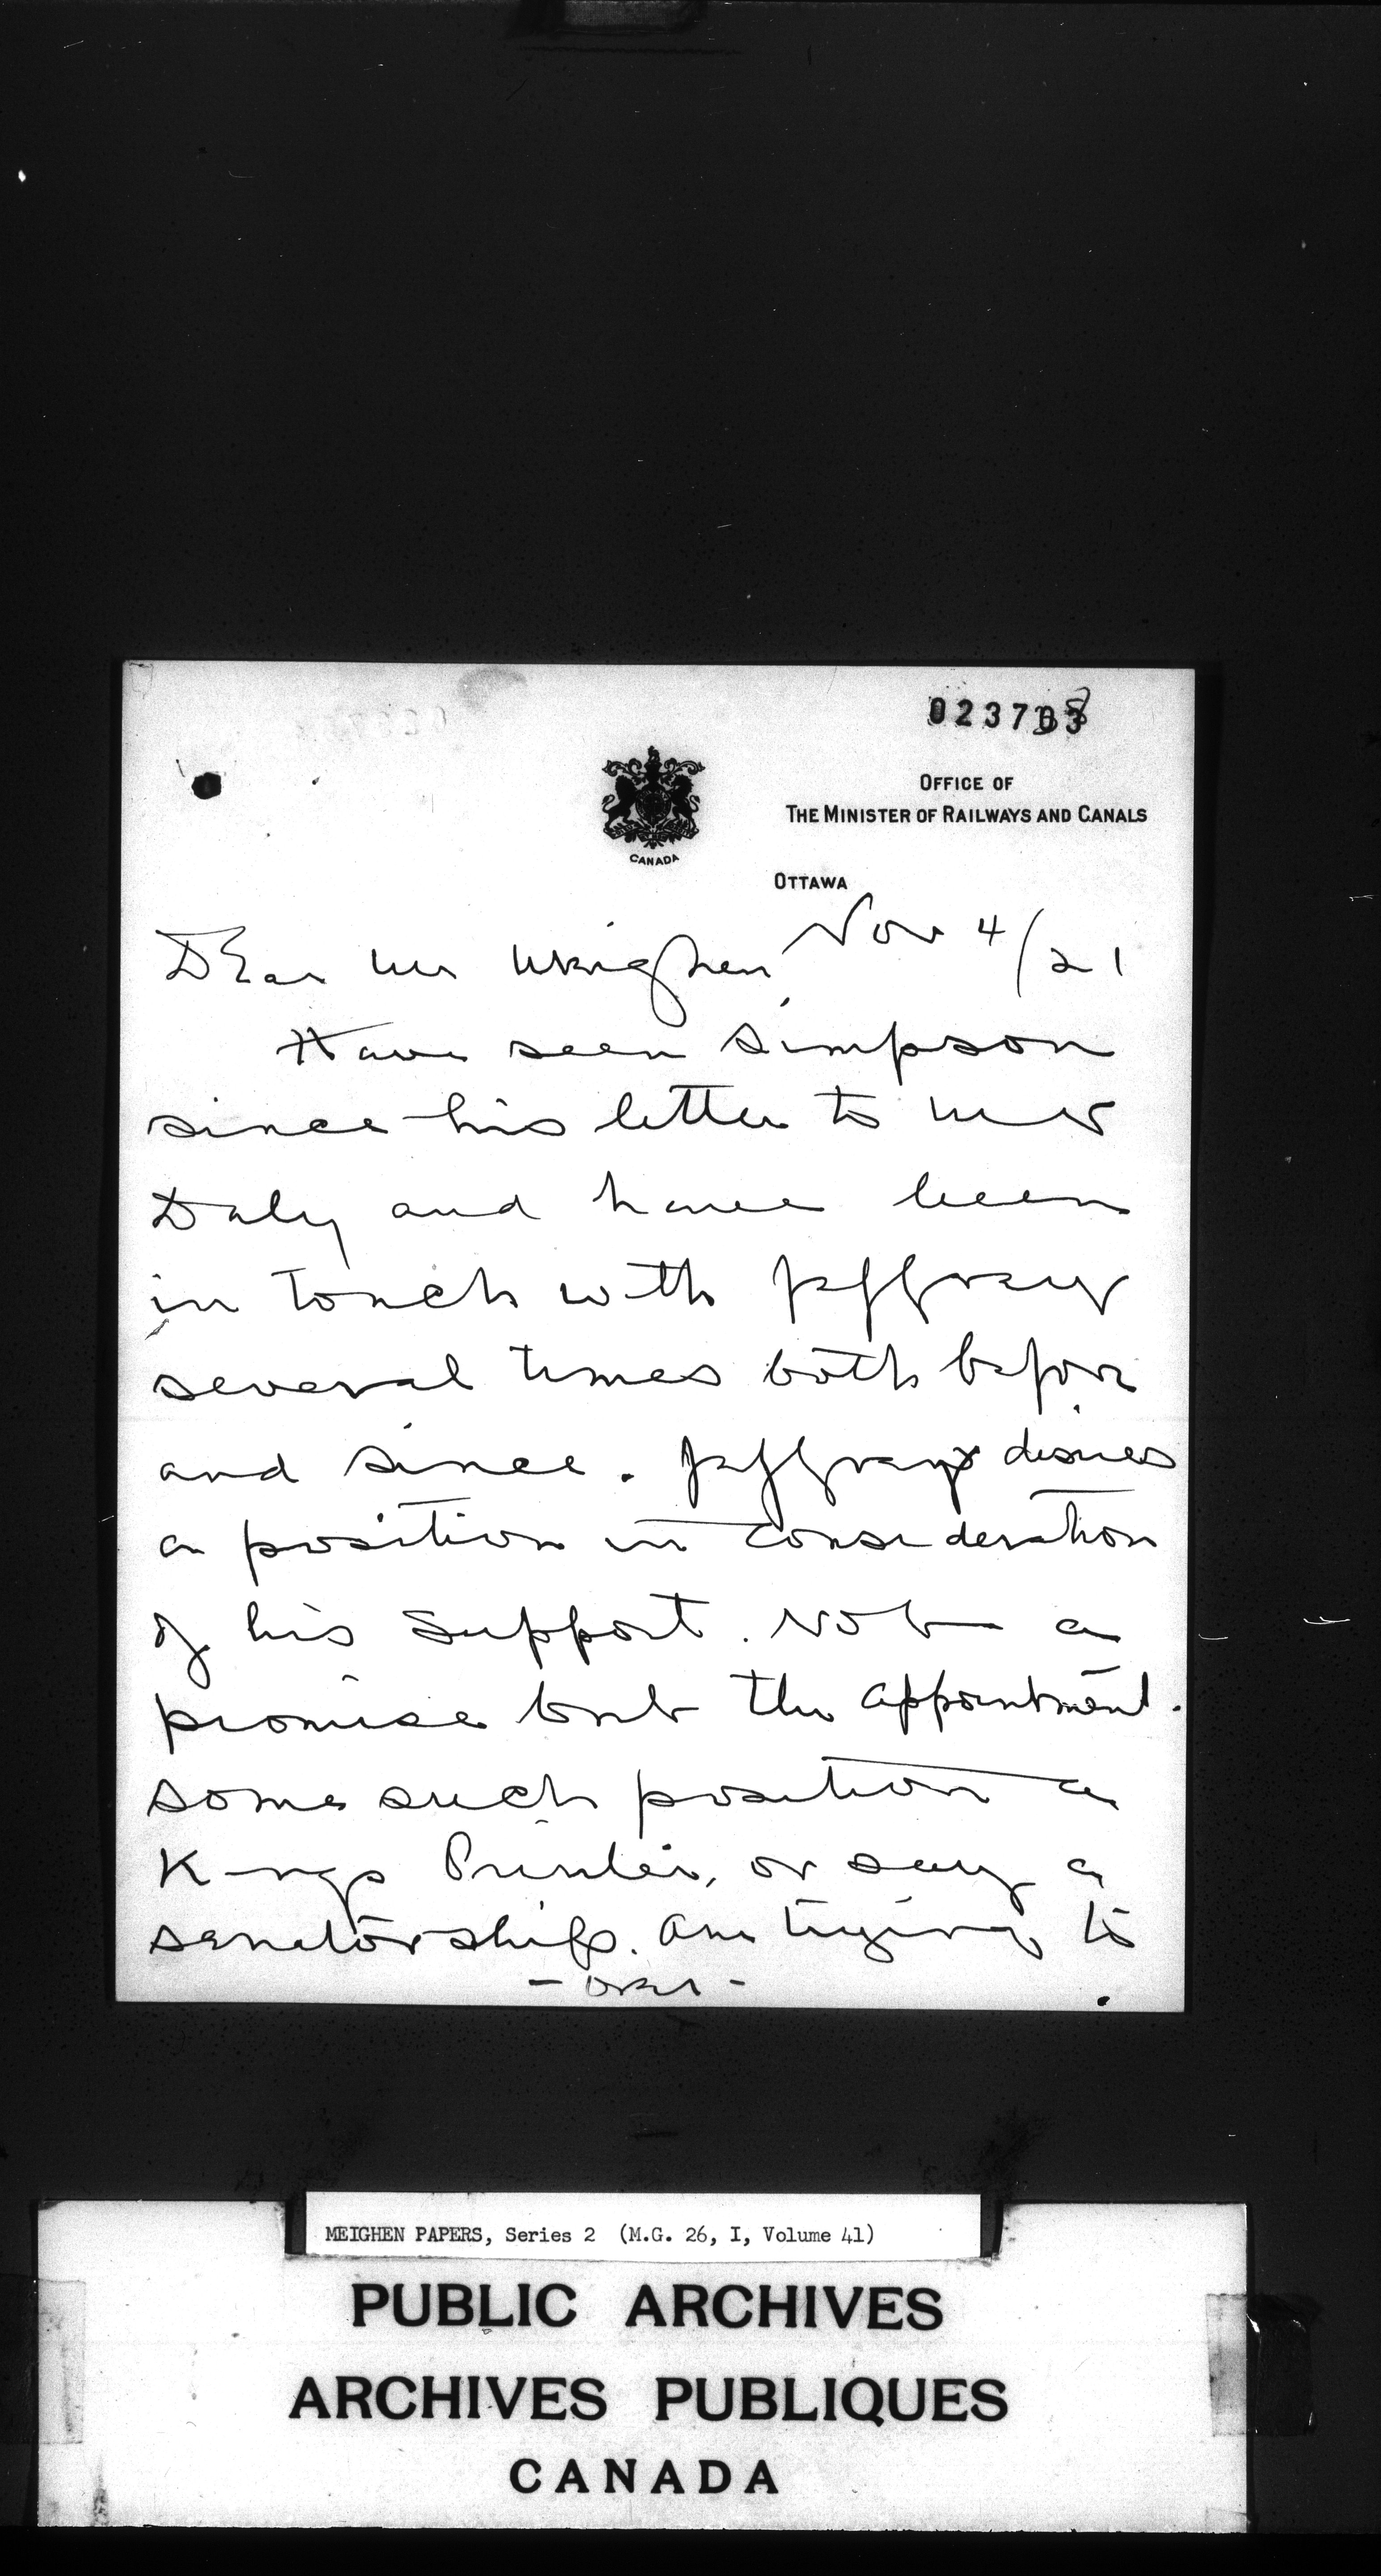 023703
OFFICE OF
THE MINISTER OF RAILWAYS AND CANALS
CANADA
OTTAWA
Nov 4/21
Dear Mr Meighen,
Have seen Simpson
since his letter to Mr
Daly and have been
in touch with Jaffray
several times both before
and since. Jaffray desires
a position in consideration
of his support. Not a
promise but the appointment.
Some such position as
Kings Printer, or say a
senatorship. Am trying to
- over -
MEIGHEN PAPERS, Series 2 (M.G. 26, I, Volume 41)
PUBLIC ARCHIVES
ARCHIVES PUBLIQUES
CANADA